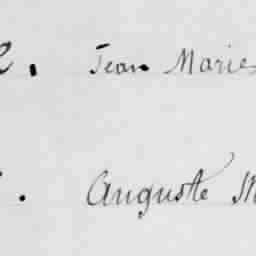 Jean Marie
Auguste